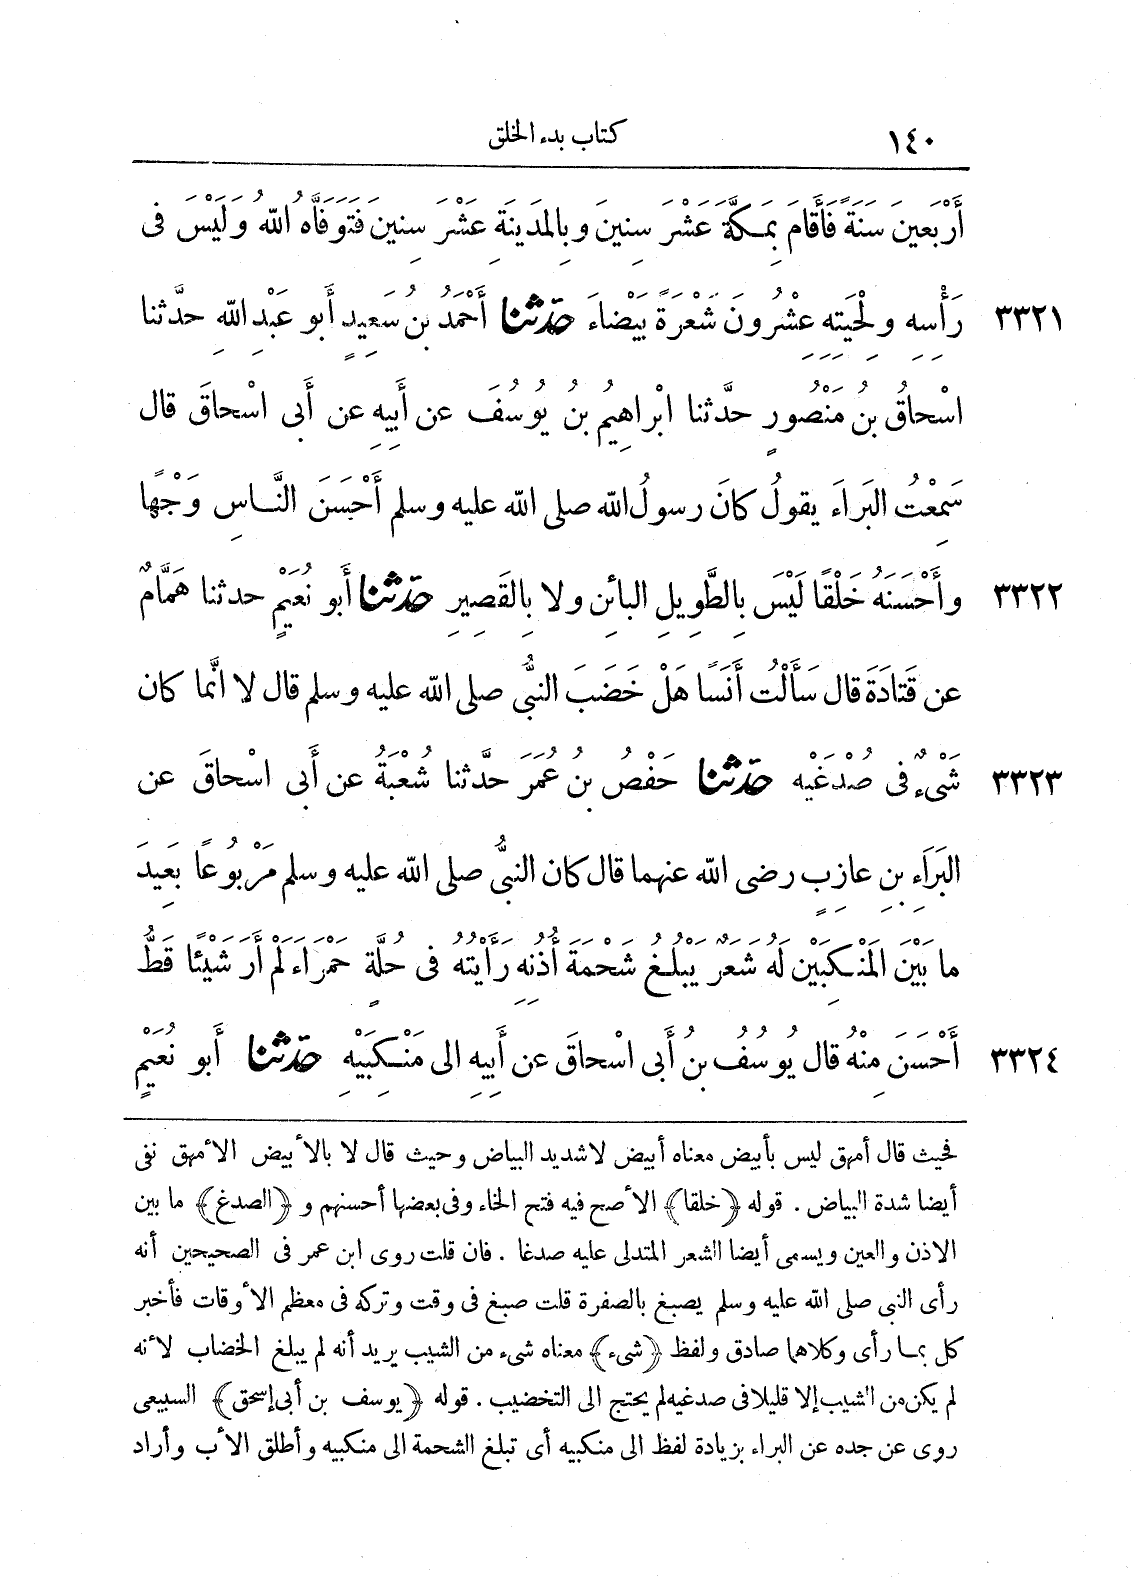 ١٤٠ كتاب بدء الخلق
أَرْبَعِينَ سَنَةً فَأَقَامَ بِمَكَّةَ عَشْرَ سِنِينَ وبِالمَدينَةِ عَشْرَ سِنِينَ فَتَوَفَّاه اللهُ ولَيْسَ فى
٣٣٢١ رَأْسِهِ ولِحْيَتِهِ عِشْرُونَ شَعْرَةً بَيْضَاءَ حدّثنا أَحْمَدُ بن سَعِيدٍ أَبو عَبْدِ اللهِ حدَّثنا
اسْحاقُ بنُ مَنْصُورٍ حدَّثنا ابْراهِيمُ بنُ يُوسُفَ عن أَبِيهِ عن أَبى اسْحاقَ قال
سَمِعْتُ البَرَاءَ يقولُ كانَ رسولُ الله صلى الله عليه وسلم أَحْسَنَ النَّاسِ وَجْهًا
٣٣٢٢ وأَحْسَنَهُ خَلْقًا لَيْسَ بِالطَّوِيلِ البائنِ ولا بِالقَصِيرِ حدّثنا أَبو نُعَيْمٍ حدثنا هَمَّامٌ
عن قَتادَةَ قال سَأَلْت أَنَسًا هَلْ خَضَبَ النبىُّ صلى الله عليه وسلم قال لا انَّما كان
٣٣٢٣ شَىْءٌ فى صُدْغَيْهِ حدّثنا حَفْصُ بنُ عُمَرَ حدَّثنا شُعْبَةُ عن أَبى اسْحاقَ عن
البَرَاءِ بنِ عازِبٍ رضى الله عنهما قال كان النبىُّ صلى الله عليه وسلم مَرْبُوعًا بَعِيدَ
ما بَيْنَ المَنْكِبَيْنِ لَهُ شَعَرٌ يَبْلُغُ شَحْمَةَ أُذُنِهِ رَأَيْتُهُ فى حُلَّةٍ حَمْرَاءَ لَمْ أَرَ شَيْئًا قَطُّ
٣٣٢٤ أَحْسَنَ مِنْهُ قال يُوسُفُ بنُ أَبى اسْحاقَ عن أَبِيهِ الى مَنْكِبَيْهِ حدّثنا أَبو نُعَيْمٍ
فحيث قال أمهق ليس بأبيض معناه أبيض لا شديد البياض وحيث قال لا بالأبيض الأمهق نفى
أيضا شدة البياض . قوله ﴿خلقا﴾ الأصح فيه فتح الخاء وفى بعضها أحسنهم و ﴿الصدغ﴾ ما بين
الاذن والعين ويسمى أيضا الشعر المتدلى عليه صدغا . فان قلت روى ابن عمر فى الصحيحين أنه
رأى النبى صلى الله عليه وسلم يصبغ بالصفرة قلت صبغ فى وقت وتركه فى معظم الأوقات فأخبر
كل بما رأى وكلاهما صادق ولفظ ﴿شىء﴾ معناه شىء من الشيب يريد أنه لم يبلغ الخضاب لأنه
لم يكن من الشيب إلا قليلا فى صدغيه لم يحتج الى التخضيب . قوله ﴿يوسف بن أبى إسحق﴾ السبيعى
روى عن جده عن البراء بزيادة لفظ الى منكبيه أى تبلغ الشحمة الى منكبيه وأطلق الأب وأراد